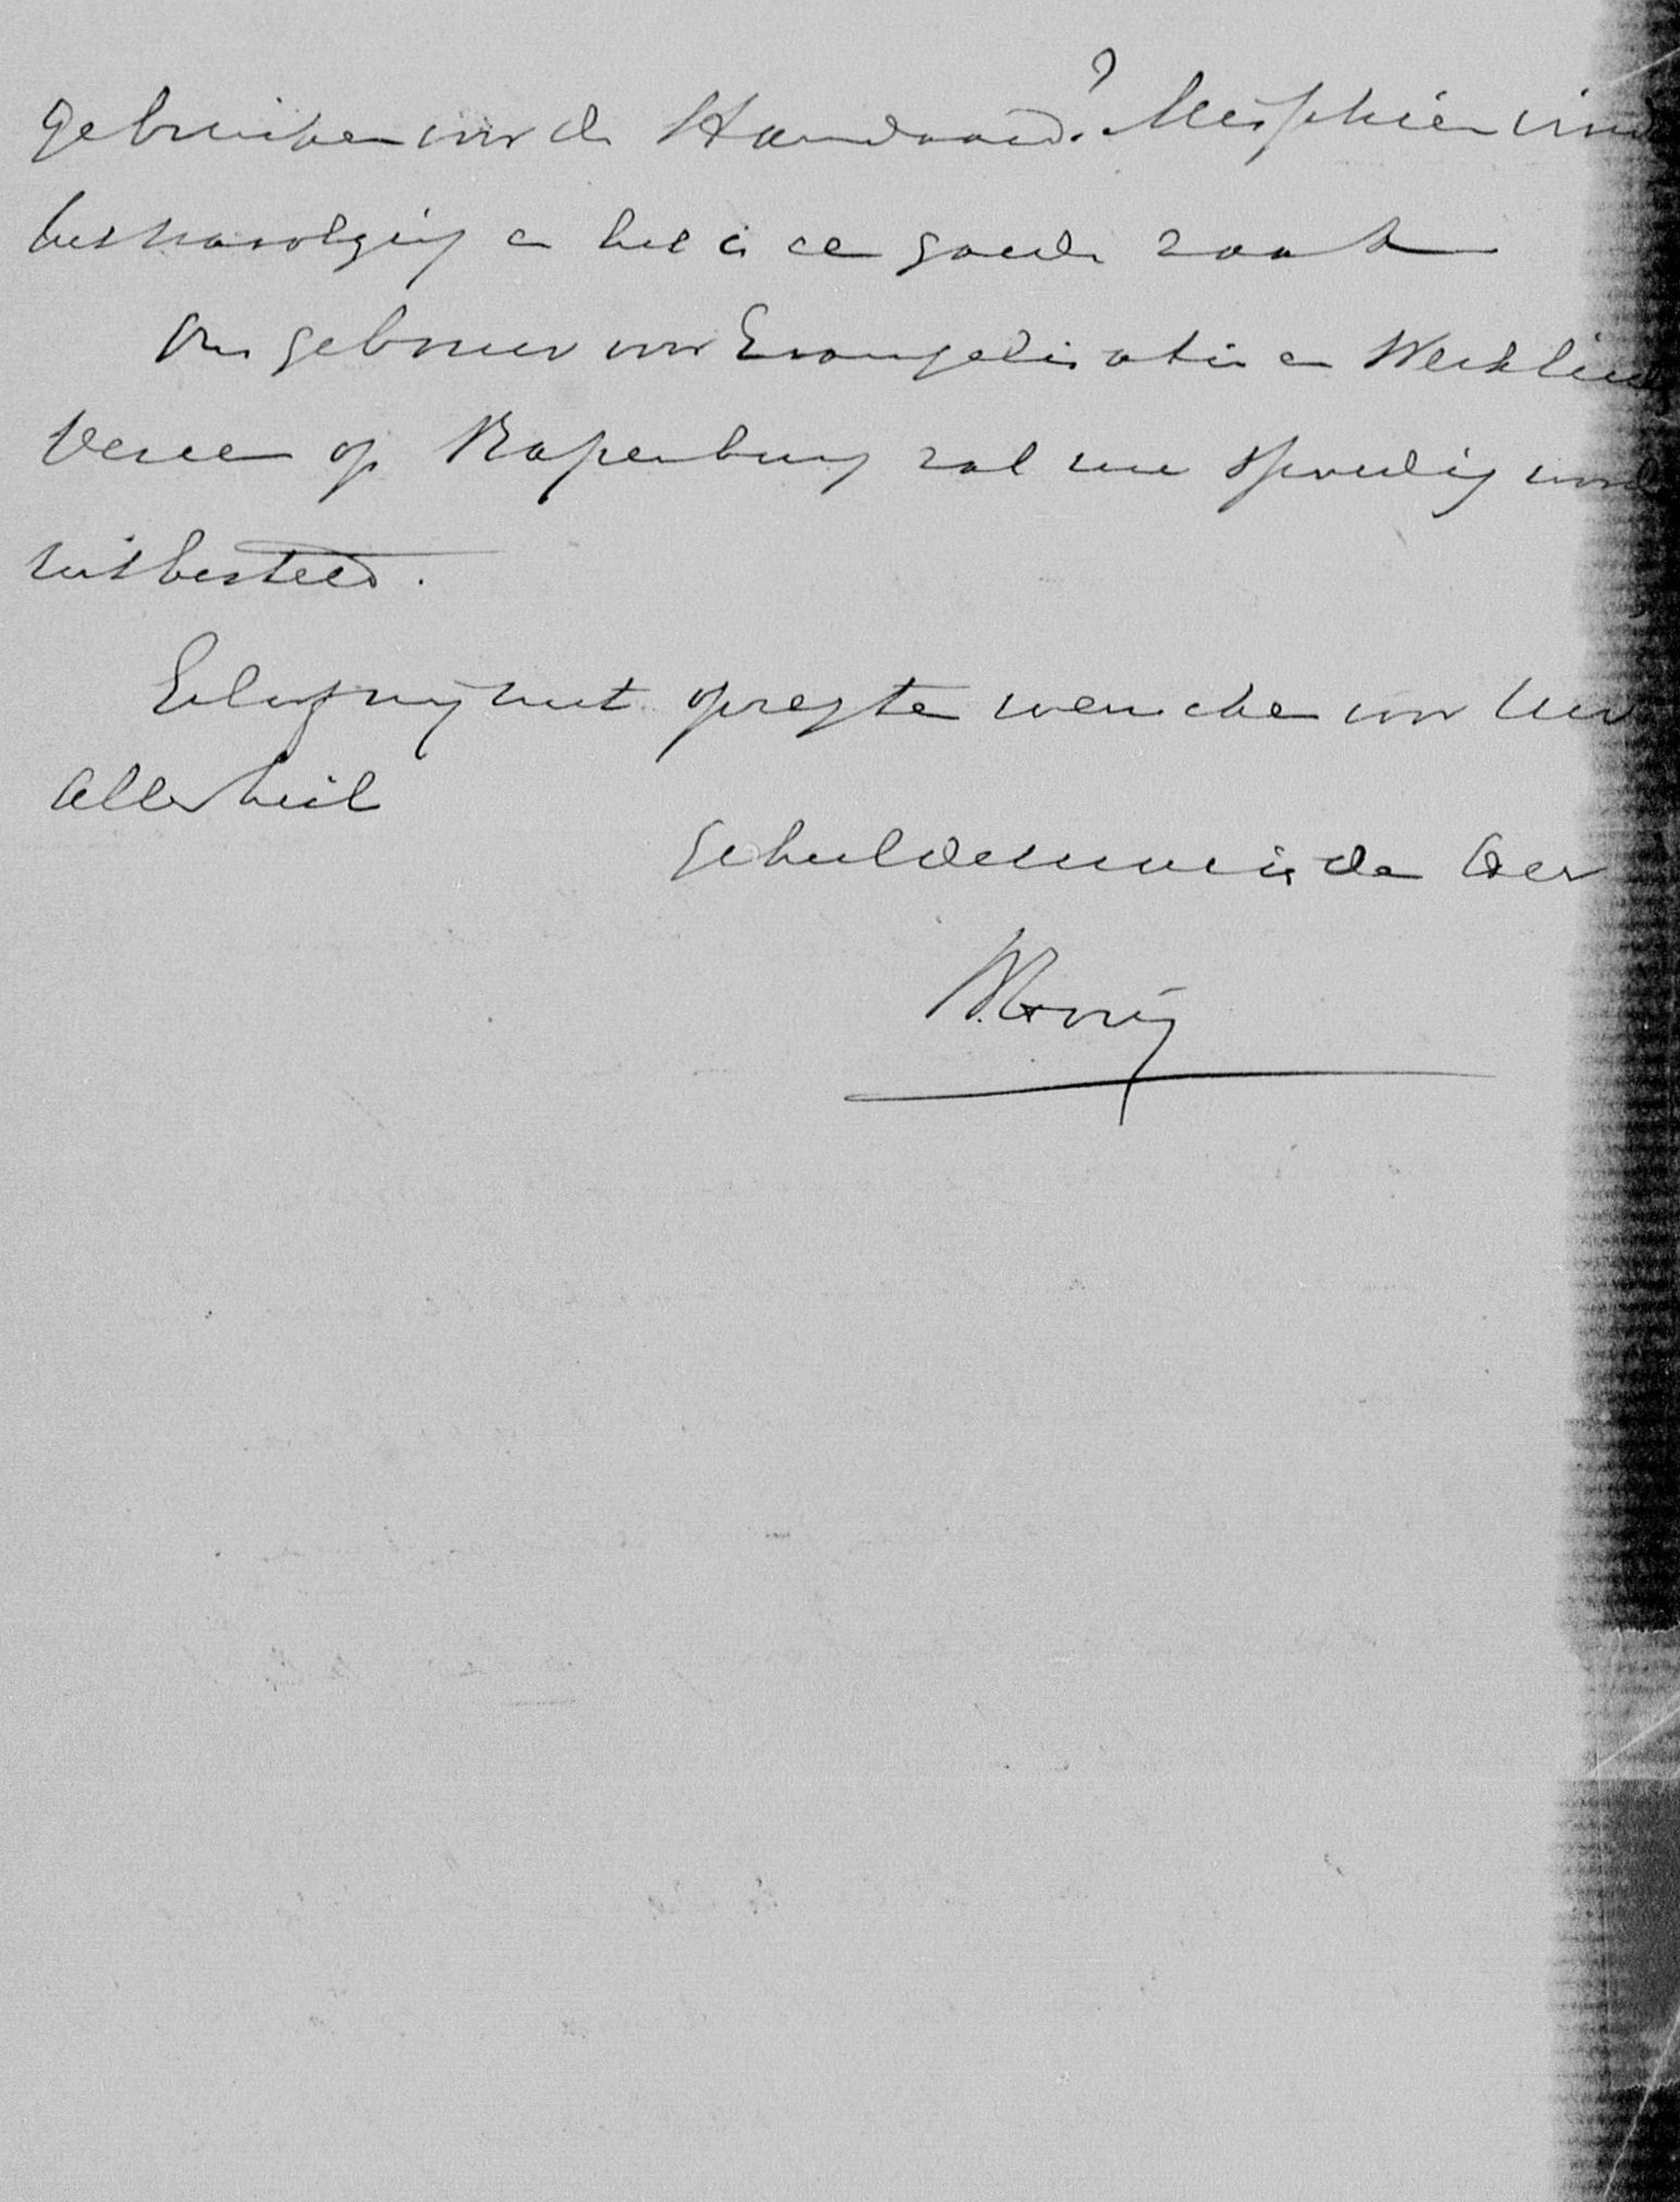 gebruiken voor de Standaard? Misschien vind
het navolging en het is een goede zaak
Ons gebouw voor Evangelisatie en Werklied
Vereen op Rapenburg zal nu spoedig word
uitbesteed.
Geloof mij met opregte wenschen voor Uw
aller heil
Hovy